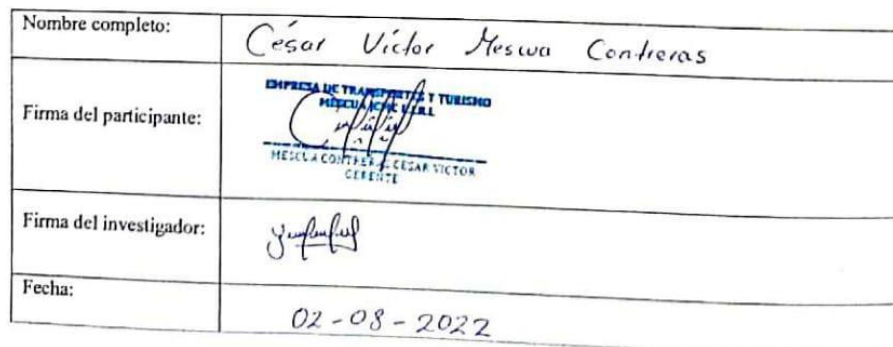 Nombre completo:
César Víctor Mescua Contreras
Firma del participante:
EMPRESA DE TRANSPORTES Y TURISMO
MESCUA E.I.R.L
MESCUA CONTRERAS CESAR VICTOR
GERENTE
Firma del investigador:
Fecha:
02-08-2022